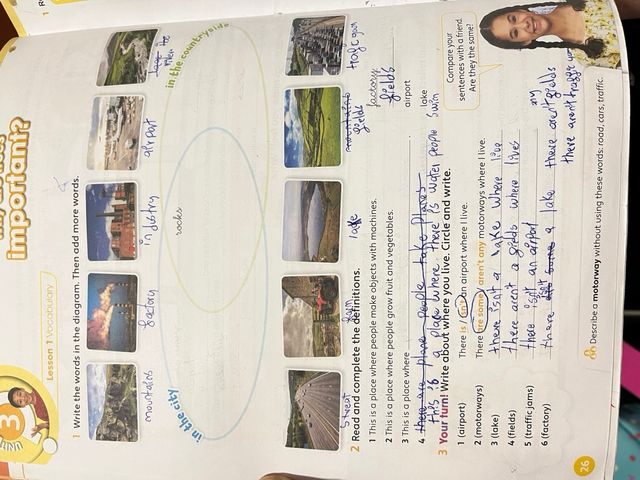 important?
UNIT 3
Lesson 1 Vocabulary
1 Write the words in the diagram. Then add more words.
mountaies factory indistry airport
in the city
rocks
in the countryside
street farm lake mountains fields trafic gam
2 Read and complete the definitions.
1 This is a place where people make objects with machines. factory
2 This is a place where people grow fruit and vegetables. fields
3 This is a place where airport
4 there are plane people take planes lake
this is a place where there is water people swim
3 Your turn! Write about where you live. Circle and write.
1 (airport) There is / isn't an airport where I live.
2 (motorways) There are some / aren't any motorways where I live.
3 (lake) there isn't a lake where live
4 (fields) there aren't a fields where lives
5 (traffic jams) there isn't an airport any
6 (factory) there isn't a lake there arent fields
there arent traffic
Compare your
sentences with a friend.
Are they the same?
Describe a motorway without using these words: road, cars, traffic.
26